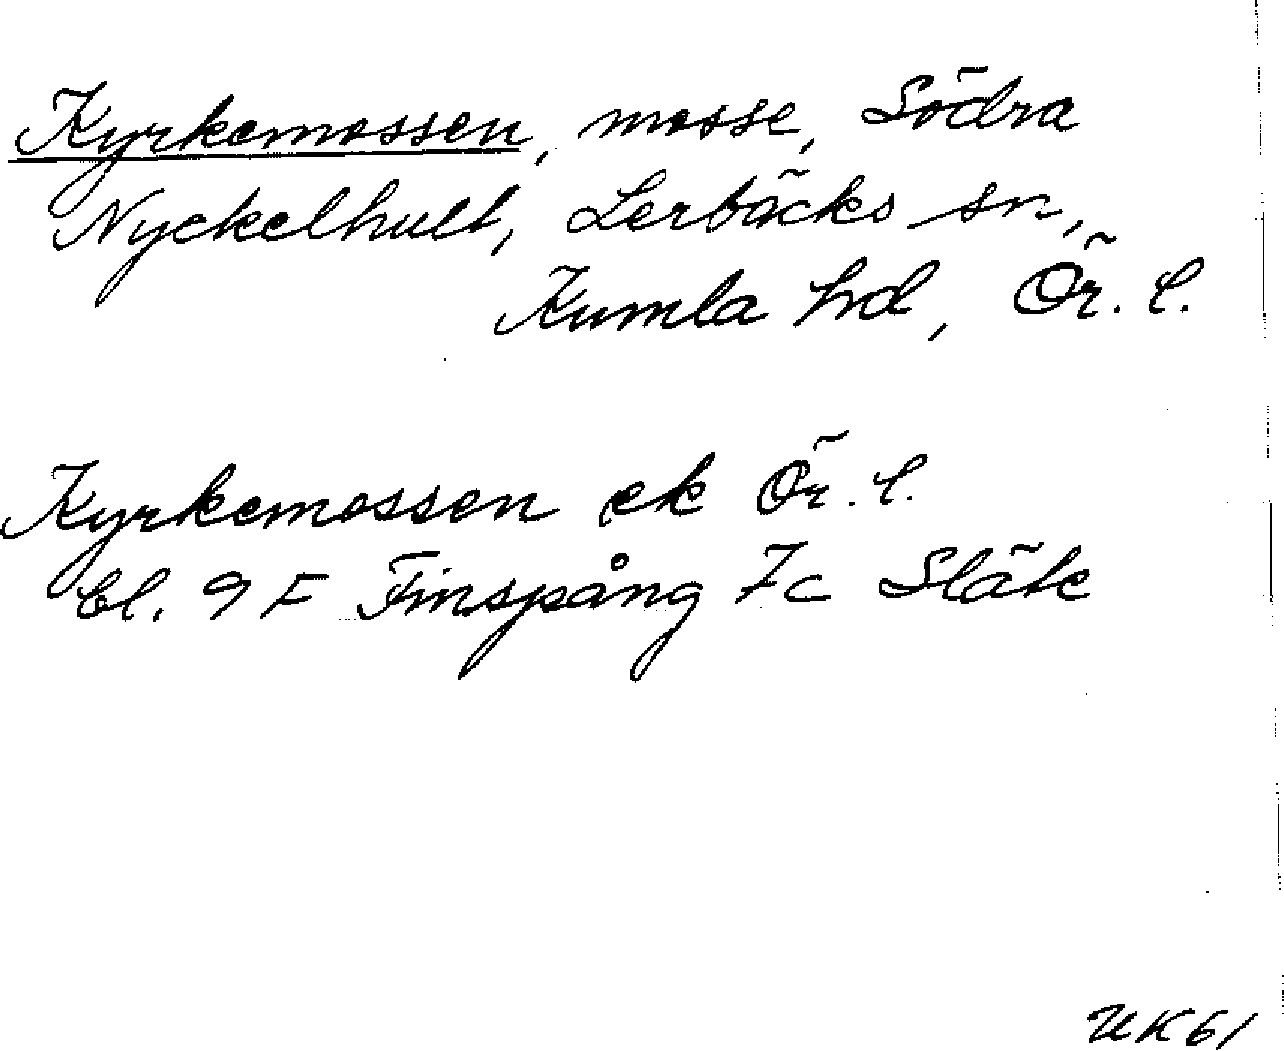 Kyrkemossen, mosse, Södra
Nyckelhult, Lerbäcks sn,
Kumla hd, Ör. l.
Kyrkemossen ek Ör. l.
bl. 9 F Finspång 7c Släte
UK61